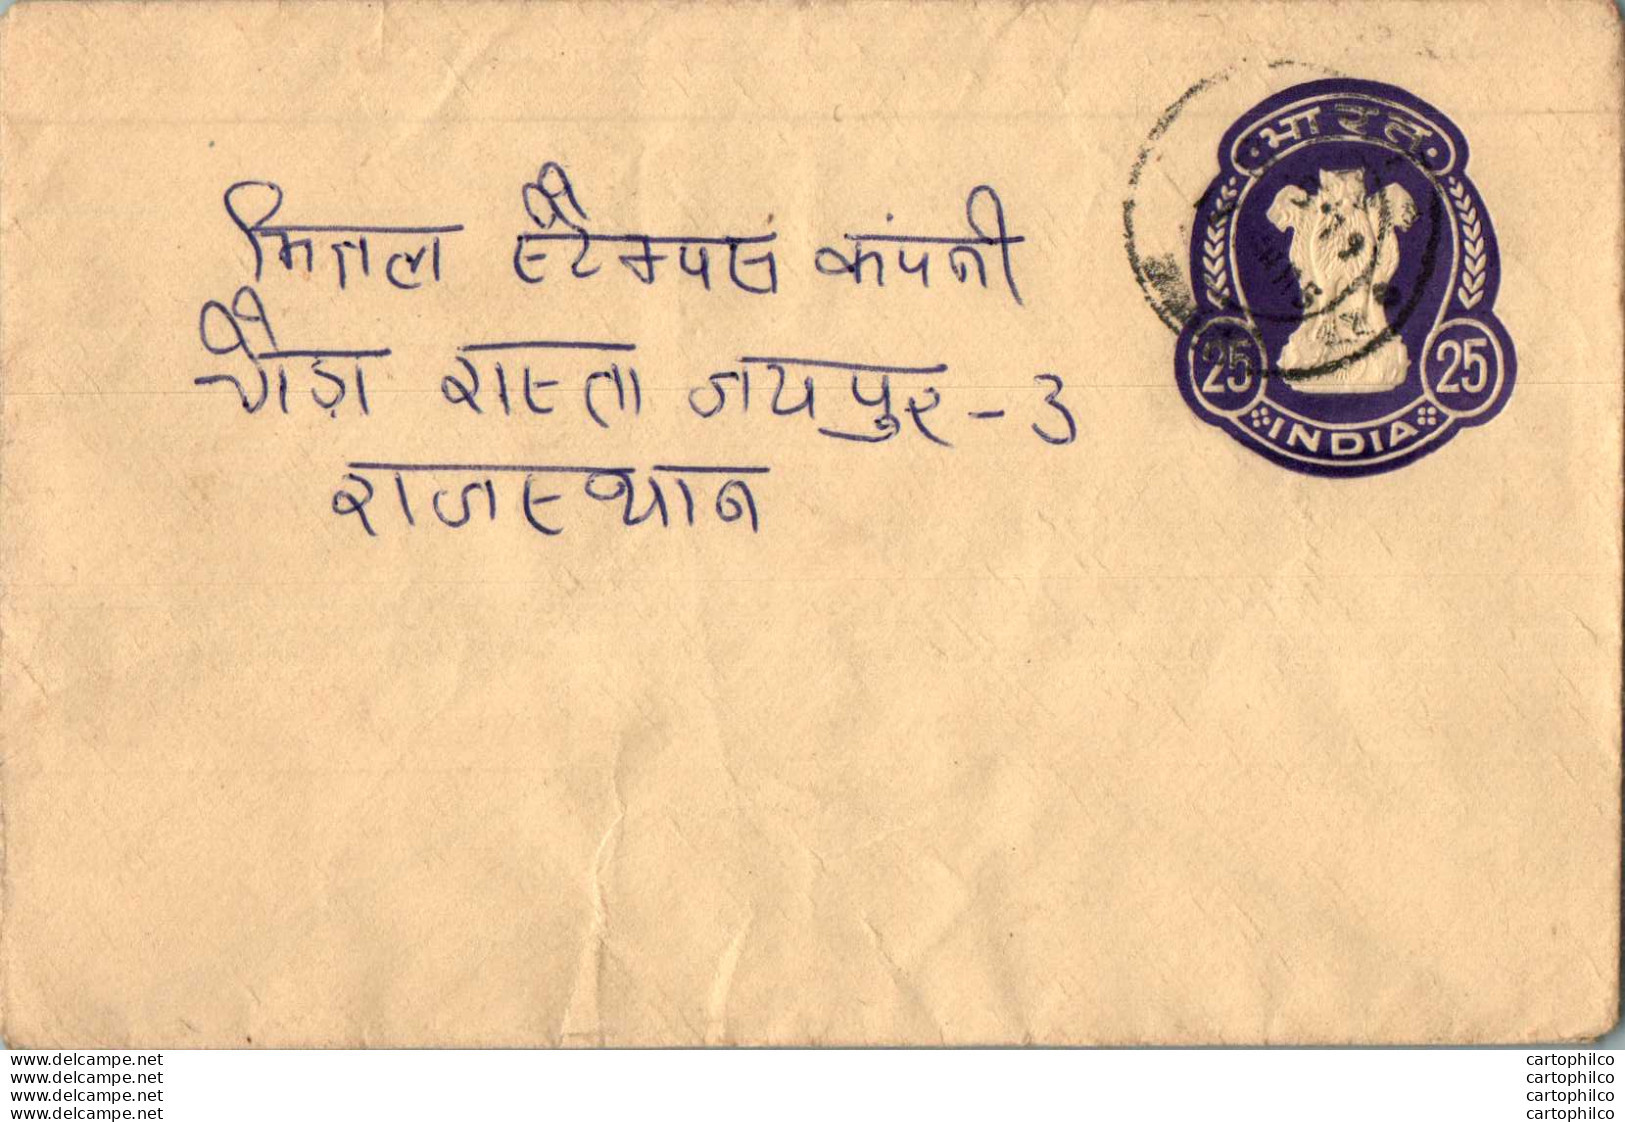 भारत
मितल स्टैम्पस कंपनी
चौड़ा रास्ता जयपुर - 3
राजस्थान
25 25
INDIA
www.delcampe.net
www.delcampe.net
www.delcampe.net
www.delcampe.net
cartophilco
cartophilco
cartophilco
cartophilco